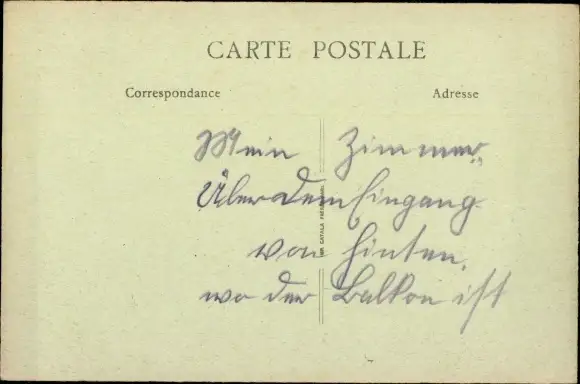 CARTE POSTALE
Correspondance Adresse
Mein Zimmer.
Über dem Eingang
von hinten,
wo der Balkon ist